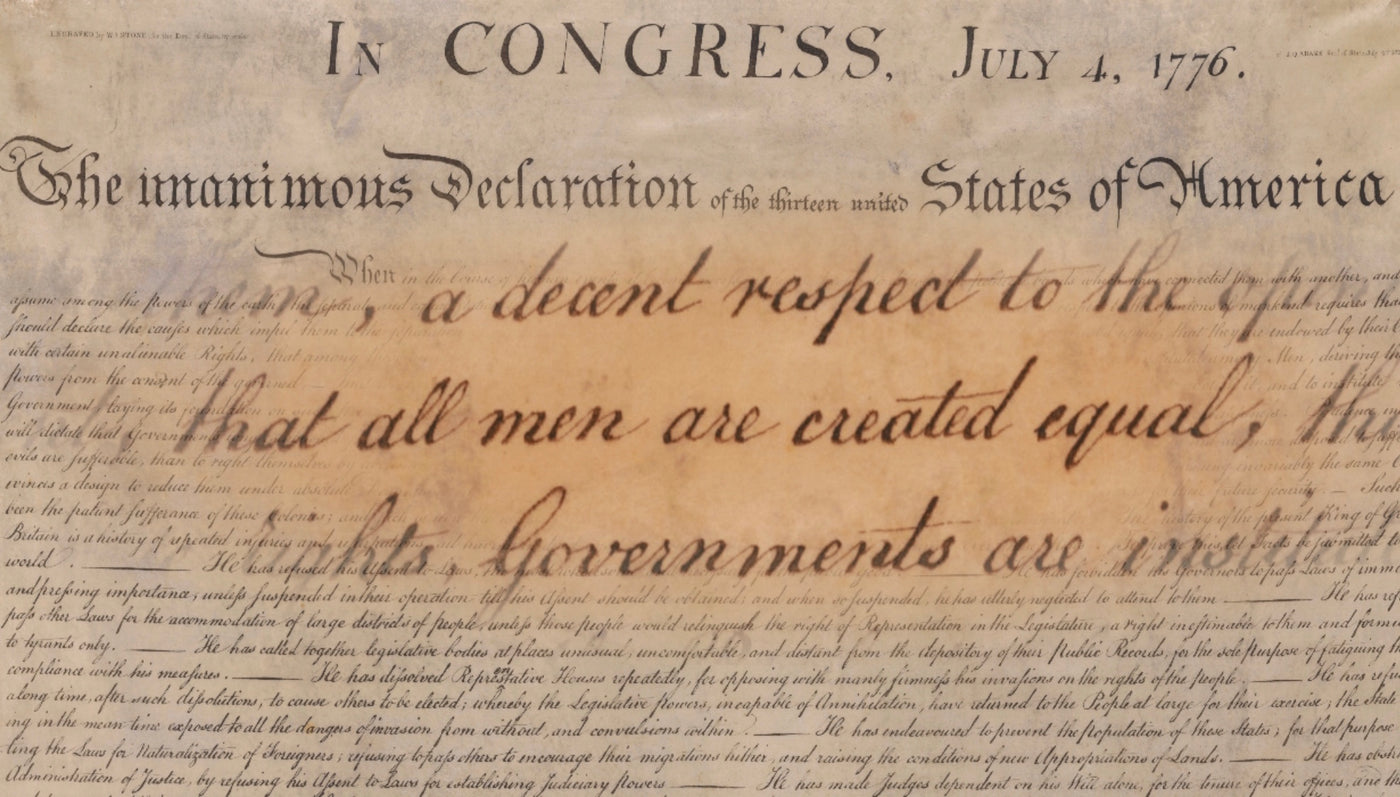 ENGRAVED by W.I. STONE, for the Dept. of State, by order
IN CONGRESS, JULY 4, 1776.
The unanimous Declaration of the thirteen united States of America
When in the Course of which have connected them with another, and
assume among the powers of the earth, the separate and
should declare the causes which impel them to the separation
, a decent respect to the
mankind requires that
that they are endowed by their
with certain unalienable Rights, that among
Men, deriving
powers from the consent of the governed
it, and to institute
Government, laying its foundation on
will dictate that Governments
that all men are created equal,
evils are sufferable, than to right themselves by
invariably the same
evinces a design to reduce them under absolute
their future security. — Such
been the patient sufferance of these Colonies; and
history of the present King of
Britain is a history of repeated injuries and usurpations, all
let Facts be submitted to
Governments are
world. ——— He has refused his Assent to Laws, He has forbidden his Governors to pass Laws of
and pressing importance, unless suspended in their operation till his Assent should be obtained; and when so suspended, he has utterly neglected to attend to them ——— He has
pass other Laws for the accommodation of large districts of people, unless those people would relinquish the right of Representation in the Legislature, a right inestimable to them and
to tyrants only. ——— He has called together legislative bodies at places unusual, uncomfortable, and distant from the depository of their Public Records, for the sole purpose of fatiguing
compliance with his measures. ——— He has dissolved Representative Houses repeatedly, for opposing with manly firmness his invasions on the rights of the people. ——— He has
along time, after such dissolutions, to cause others to be elected; whereby the Legislative powers, incapable of Annihilation, have returned to the People at large for their exercise; the State
ing in the mean time exposed to all the dangers of invasion from without, and convulsions within. ——— He has endeavoured to prevent the population of these States; for that purpose
ting the Laws for Naturalization of Foreigners; refusing to pass others to encourage their migrations hither, and raising the conditions of new Appropriations of Lands. ——— He has
Administration of Justice, by refusing his Assent to Laws for establishing Judiciary powers ——— He has made Judges dependent on his Will alone, for the tenure of their offices, and